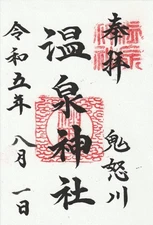 奉拝
鬼怒川
温泉神社
令和五年八月一日